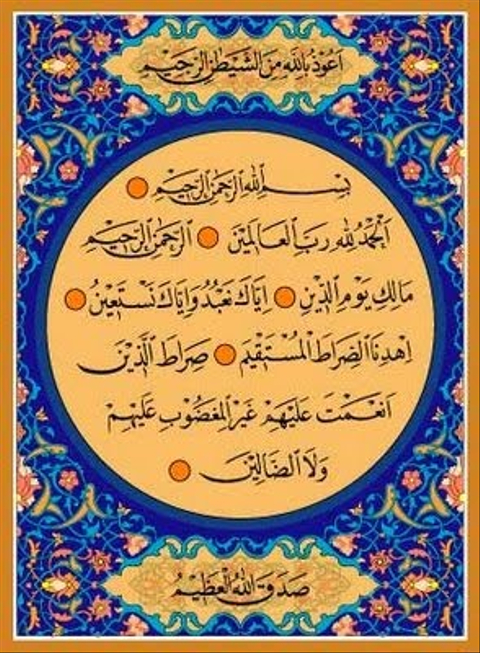 اَعُوذُ بِاللّٰهِ مِنَ الشَّيْطٰنِ الرَّجِيْمِ
بِسْمِ اللّٰهِ الرَّحْمٰنِ الرَّحِيْمِ
اَلْحَمْدُ لِلّٰهِ رَبِّ الْعَالَمِيْنَ اَلرَّحْمٰنِ الرَّحِيْمِ
مَالِكِ يَوْمِ الدِّيْنِ اِيَّاكَ نَعْبُدُ وَاِيَّاكَ نَسْتَعِيْنُ
اِهْدِنَا الصِّرَاطَ الْمُسْتَقِيْمَ صِرَاطَ الَّذِيْنَ
اَنْعَمْتَ عَلَيْهِمْ غَيْرِ الْمَغْضُوْبِ عَلَيْهِمْ
وَلَا الضَّالِّيْنَ
صَدَقَ اللّٰهُ الْعَظِيْمُ